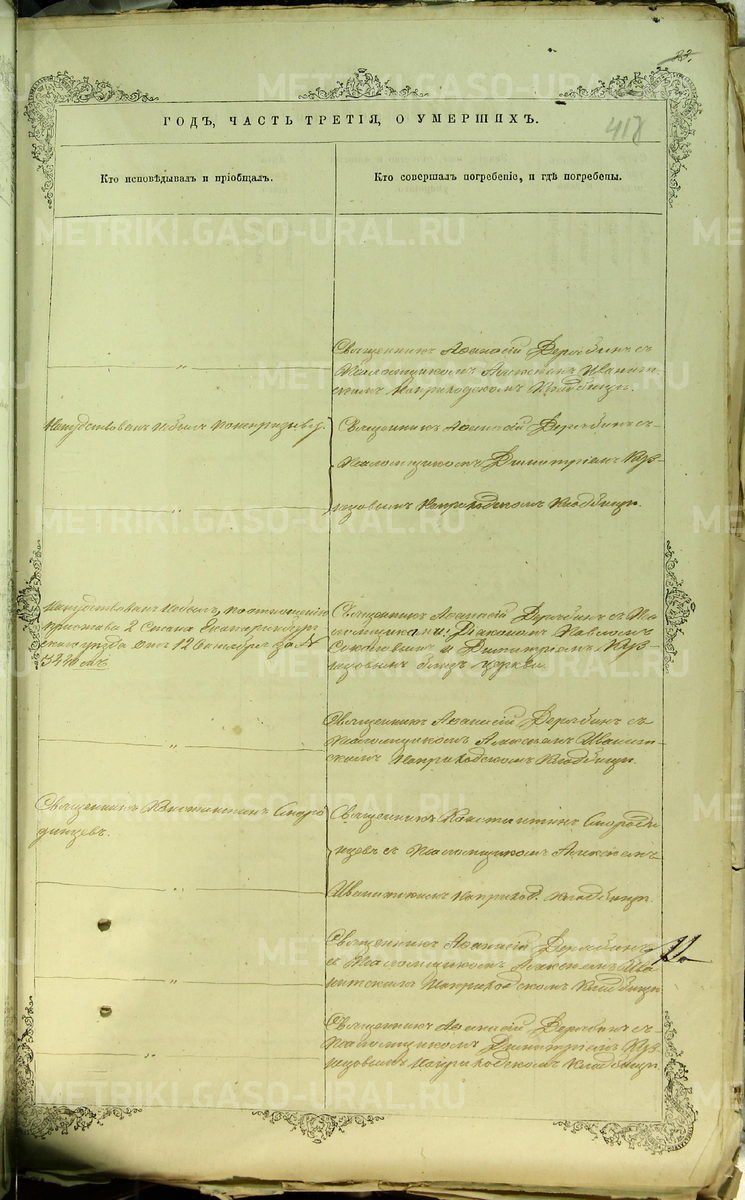 22.
417
ГОДЪ, ЧАСТЬ ТРЕТІЯ, О УМЕРШИХЪ.
Кто исповѣдывалъ и пріобщалъ.
Кто совершалъ погребеніе, и гдѣ погребены.
Священникъ Аѳанасій Дерябинъ съ
Псаломщикомъ Алексѣемъ Иванит-
скимъ На приходскомъ Кладбищѣ.
"
Священникъ Аѳанасій Дерябинъ съ
Псаломщикомъ Димитріемъ
На приходскомъ Кладбищѣ.
"
по отношенію
Пристава 2 Стана Екатеринбург
скаго уѣзда отъ 12 Октября за №
Священникъ Аѳанасій Дерябинъ съ Пса
ломщиками: Діакономъ Павломъ
и Димитріемъ
близъ церкви.
Священникъ Аѳанасій Дерябинъ съ
Псаломщикомъ Алексѣемъ Иванит-
скимъ На приходскомъ Кладбищѣ.
"
Священникъ Константинъ Сморо
динцевъ.
Священникъ Константинъ Смороди
нцевъ съ Псаломщикомъ Алексѣемъ
Иванитскимъ На приход. Кладбищѣ.
"
Священникъ Аѳанасій Дерябинъ
съ Псаломщикомъ Алексѣемъ Ива
нитскимъ На приходскомъ Кладбищѣ
"
Священникъ Аѳанасій Дерябинъ съ
Псаломщикомъ Димитріемъ
На приходскомъ Кладбищѣ
"
METRIKI.GASO-URAL.RU